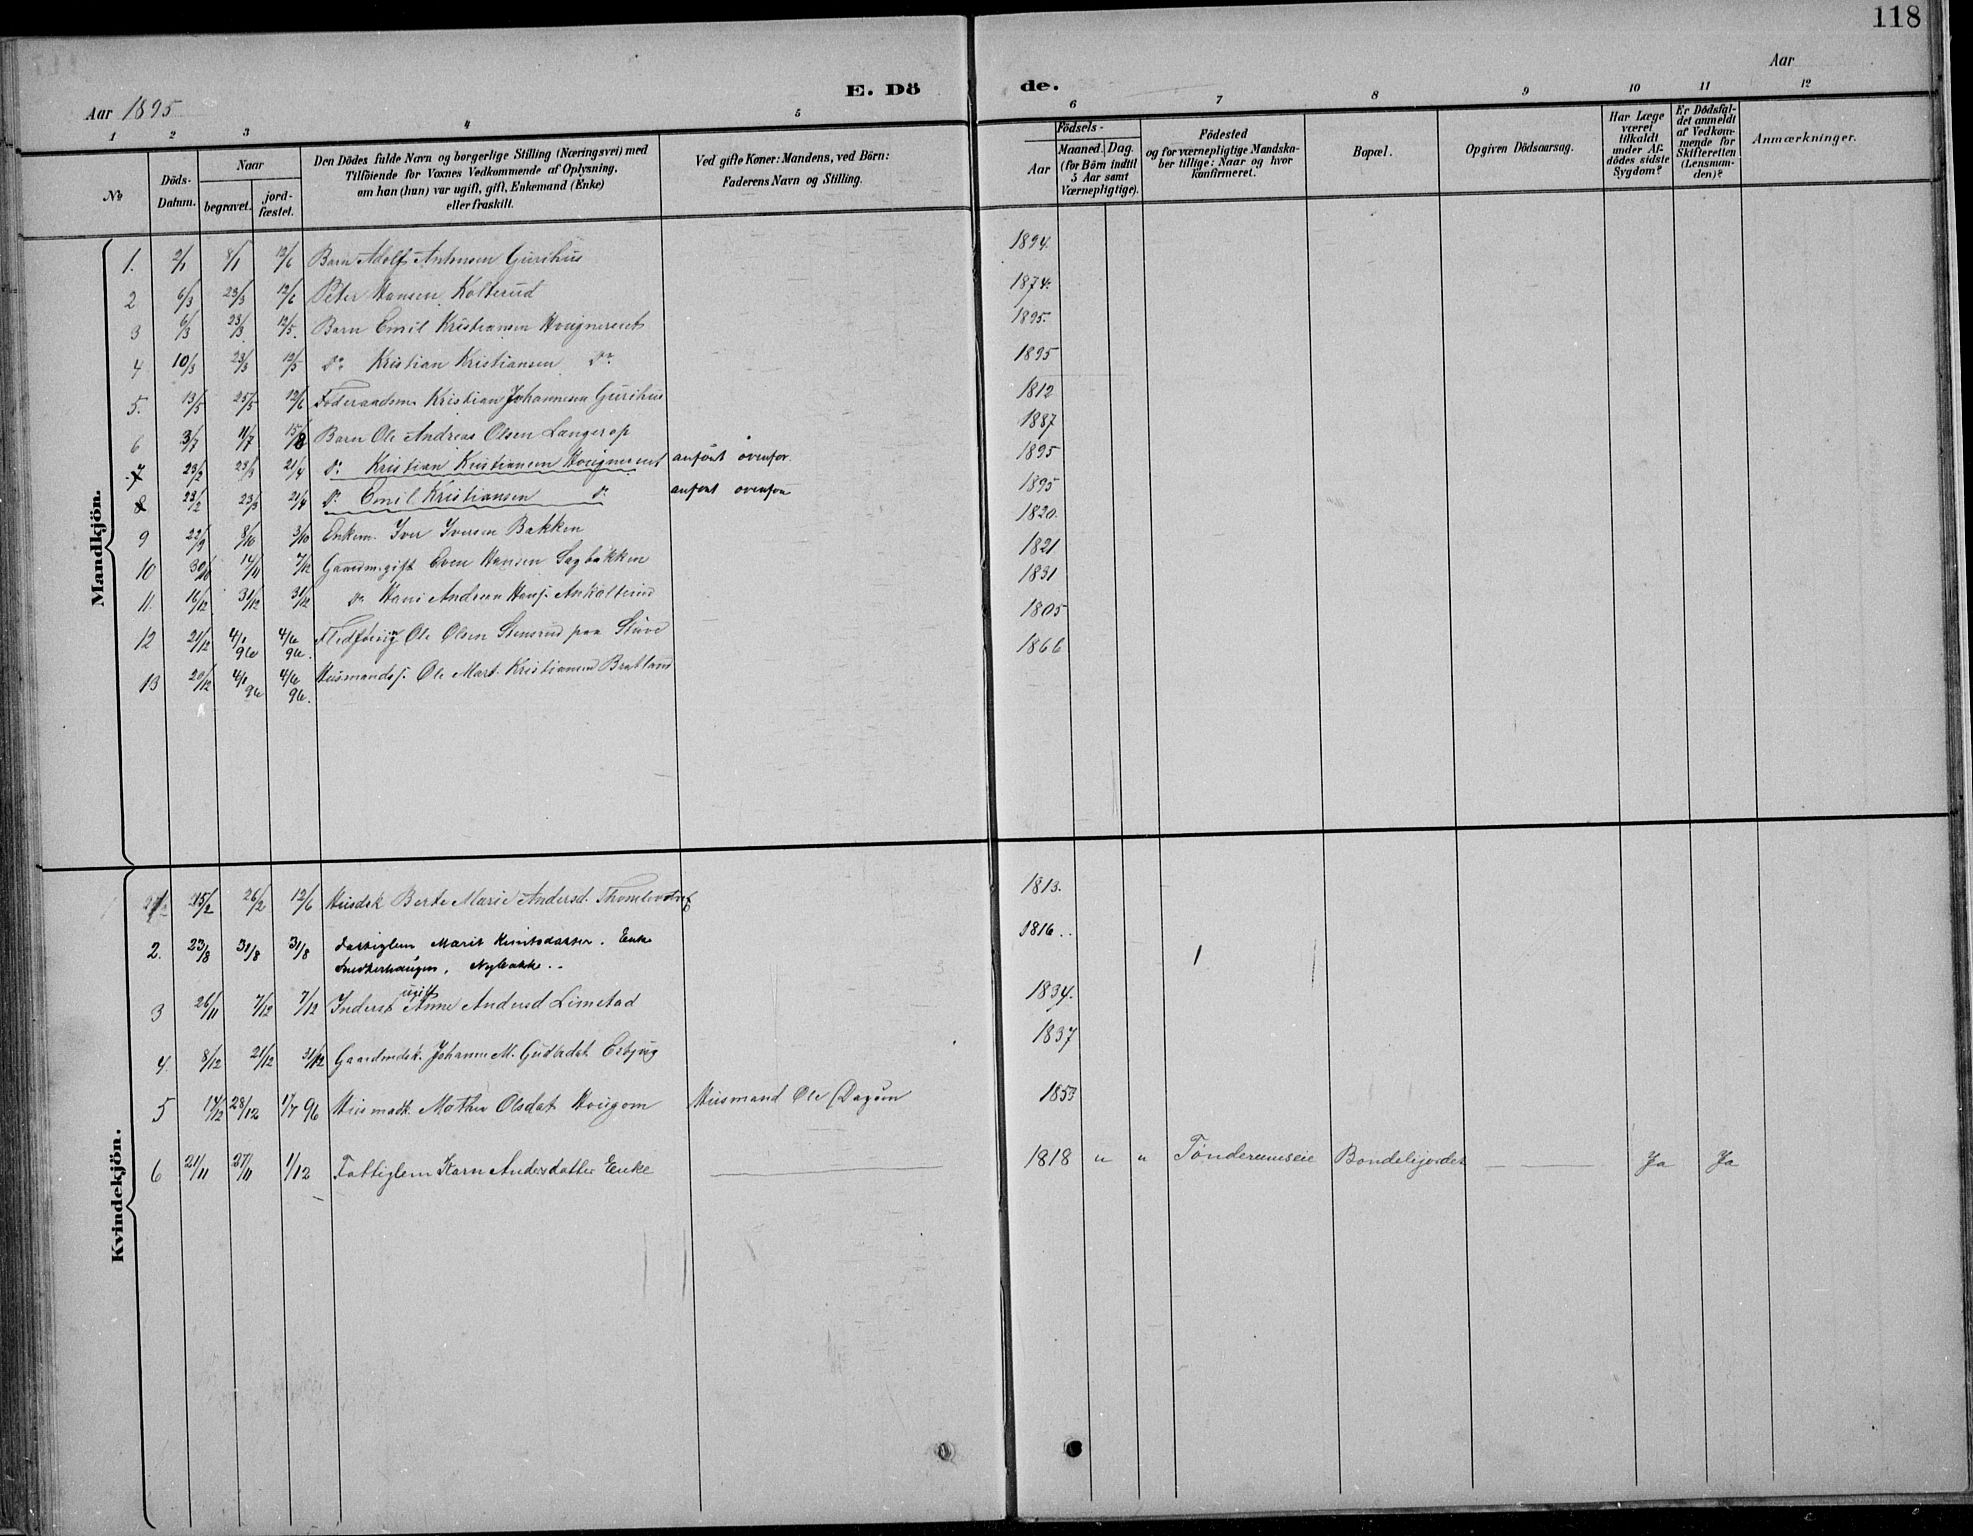 118
E. Dö de.
Aar 1895
Aar
1 2 3 4 5 6 7 8 9 10 11 12
No
Döds-Datum.
Naar
begravet.
jord-fæstet.
Den Dödes fulde Navn og borgerlige Stilling (Næringsvei) med
Tilföiende for Voxnes Vedkommende af Oplysning,
om han (hun) var ugift, gift, Enkemand (Enke)
eller fraskilt.
Ved gifte Koner: Mandens, ved Börn:
Faderens Navn og Stilling.
Födsels-
Aar
Maaned. Dag.
(for Börn indtil
5 Aar samt
Værnepligtige).
Födested
og for værnepligtige Mandska-
ber tillige: Naar og hvor
konfirmeret.
Bopæl.
Opgiven Dödsaarsag.
Har Læge
været
tilkaldt
under Af-
dödes sidste
Sygdom?
Er Dödsfal-
det anmeldt
af Vedkom-
mende for
Skifteretten
(Lensman-
den)?
Anmærkninger.
Mandkjön.
1. 2/1 8/1 12/6 Barn Adolf Antonsen Gurihus 1894.
2 6/3 23/3 12/6 Peter Hansen Kolterud 1874.
3 6/3 23/3 12/5. Barn Emil Kristiansen 1895.
4 10/3 23/3 12/5 Do Kristian Kristiansen Do 1895
5. 13/5 25/5 12/6 Föderaadsm. Kristian Johannesen Gurihus 1812
6 3/7 11/7 15/8 Barn Ole Andreas Olsen Langerop 1887
7 23/2 23/3 21/4 Do Kristian Kristiansen anfört ovenfor. 1895
8 23/2 23/3 21/4 Do Emil Kristiansen Do anfört ovenfor 1895
9 22/9 8/10 3/10 Enkem. Iver Iversen Bakken 1820.
10 30/10 14/11 7/12 Gaardm. gift Even Hansen Sagbakken 1821
11. 16/12 31/12 31/12 Do Hans Andreas Hans. 1831
12 21/12 4/1 96 4/6 96. Ole Olsen Stensrud paa Stuve 1805
13 20/12 4/1 96 4/6 96. Husmands. Ole Mart. Kristiansen Bratland 1866
Kvindekjön.
1 15/2 26/2 12/6 Husdsk Berte Marie Andersd. 1813.
2. 23/8 31/8 31/8 Fattiglem Marit Knutsdatter. Enke 1816..
Snedkerhaugen, Nybakke..
3 26/11 7/12 7/12 Inderst ugift Anne Andersd Limstad 1834.
4. 8/12 21/12 31/12 Gaardmdsk. Johanne M. Gudbdat. 1837
5 14/12 28/12 1/7 96 Husmadk. Mathea Olsdat. Hougom Husmand Ole 1853
6 21/11 27/11 1/12 Fattiglem Karn Andersdatter Enke 1818 " " Tönderumseie Bondeligordet Ja Ja